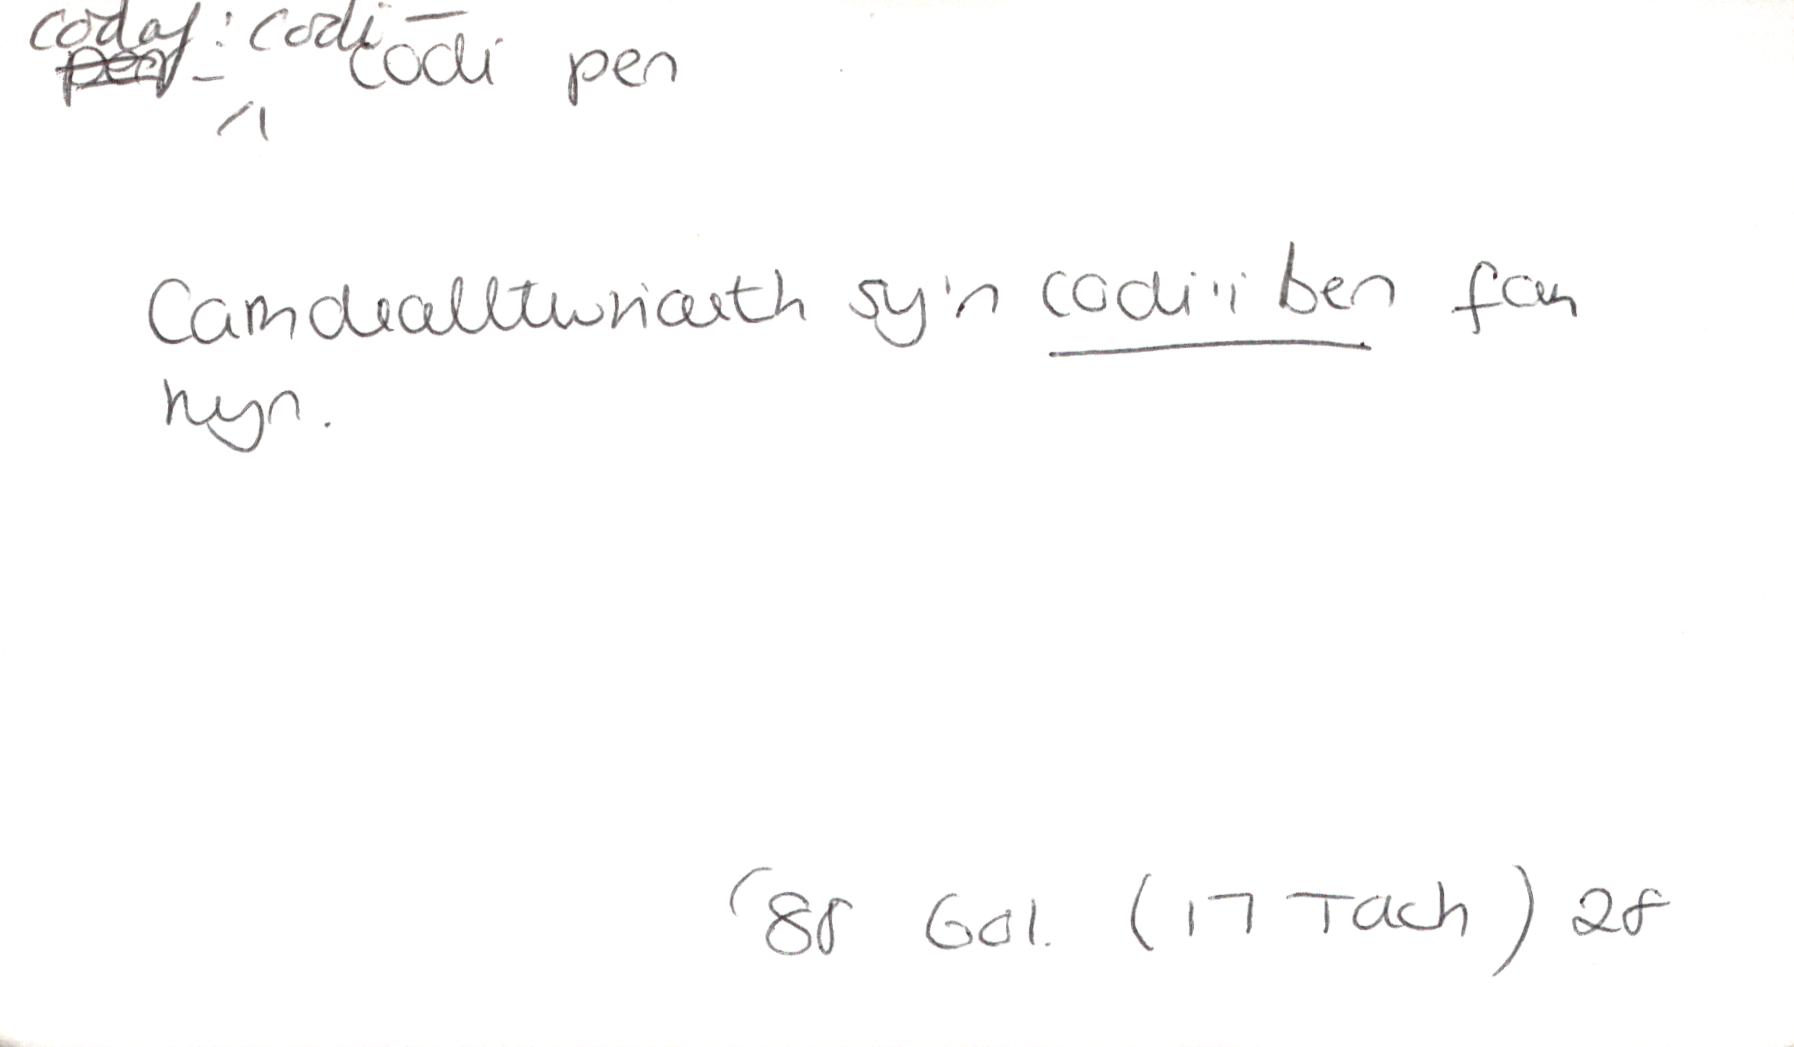 codaf: codi –
pen – codi pen
Camdealltwriaeth sy'n codi'i ben fan
hyn.
'88 Gol. (17 Tach) 28